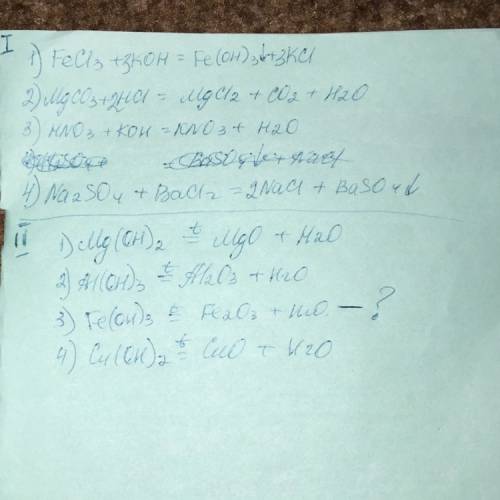 I
1) FeCl3 + 3KOH = Fe(OH)3↓ + 3KCl
2) MgCO3 + 2HCl = MgCl2 + CO2 + H2O
3) HNO3 + KOH = KNO3 + H2O
4) Na2SO4 + BaCl2 = 2NaCl + BaSO4↓
II
1) Mg(OH)2 =t MgO + H2O
2) Al(OH)3 =t Al2O3 + H2O
3) Fe(OH)3 =t Fe2O3 + H2O. — ?
4) Cu(OH)2 =t CuO + H2O